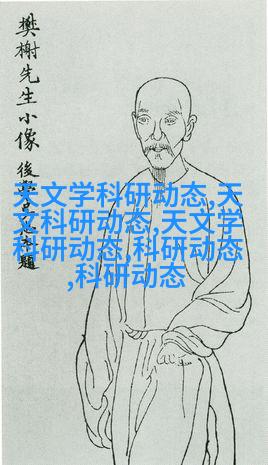 樊榭先生小像 後 題
天文学科研动态,天
文科研动态,天文学
科研动态,科研动态
,科研动态